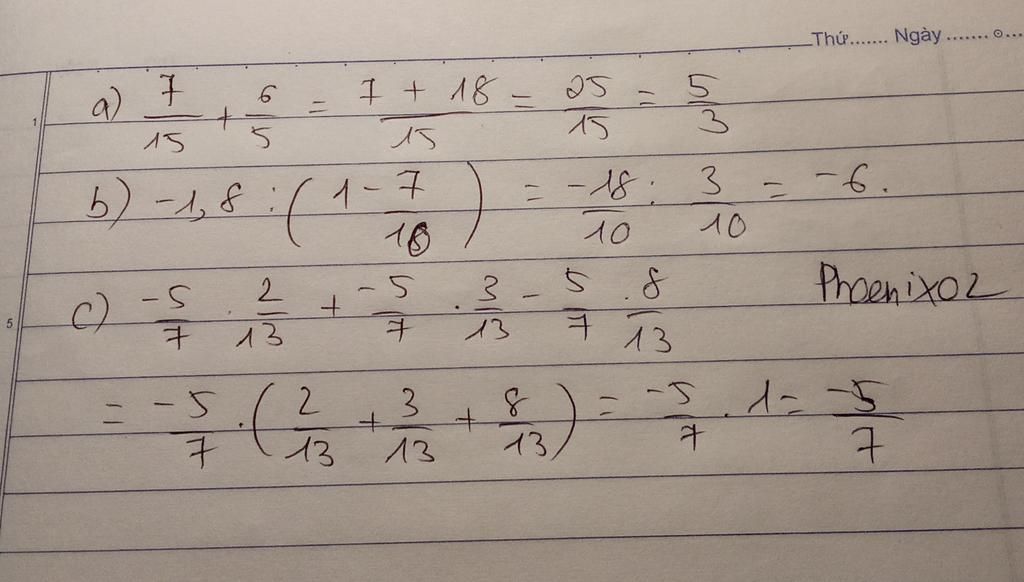 Thứ....... Ngày .......
a) 7/15 + 6/5 = (7 + 18)/15 = 25/15 = 5/3
b) -1,8 : (1 - 7/10) = -18/10 : 3/10 = -6.
c) -5/7 . 2/13 + -5/7 . 3/13 - 5/7 . 8/13
Phoenix02
= -5/7 . (2/13 + 3/13 + 8/13) = -5/7 . 1 = -5/7
1
5